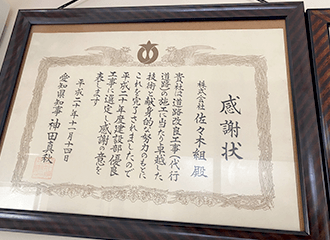 感謝状
株式会社 佐々木組 殿
貴社は道路改良工事(代行
道路)の施工に当たり卓越した
技術と献身的な努力のもとに
これを完了されましたので
平成二十年度建設部優良
工事に選定し感謝の意を
表します
平成二十年十一月十四日
愛知県知事 神田真秋